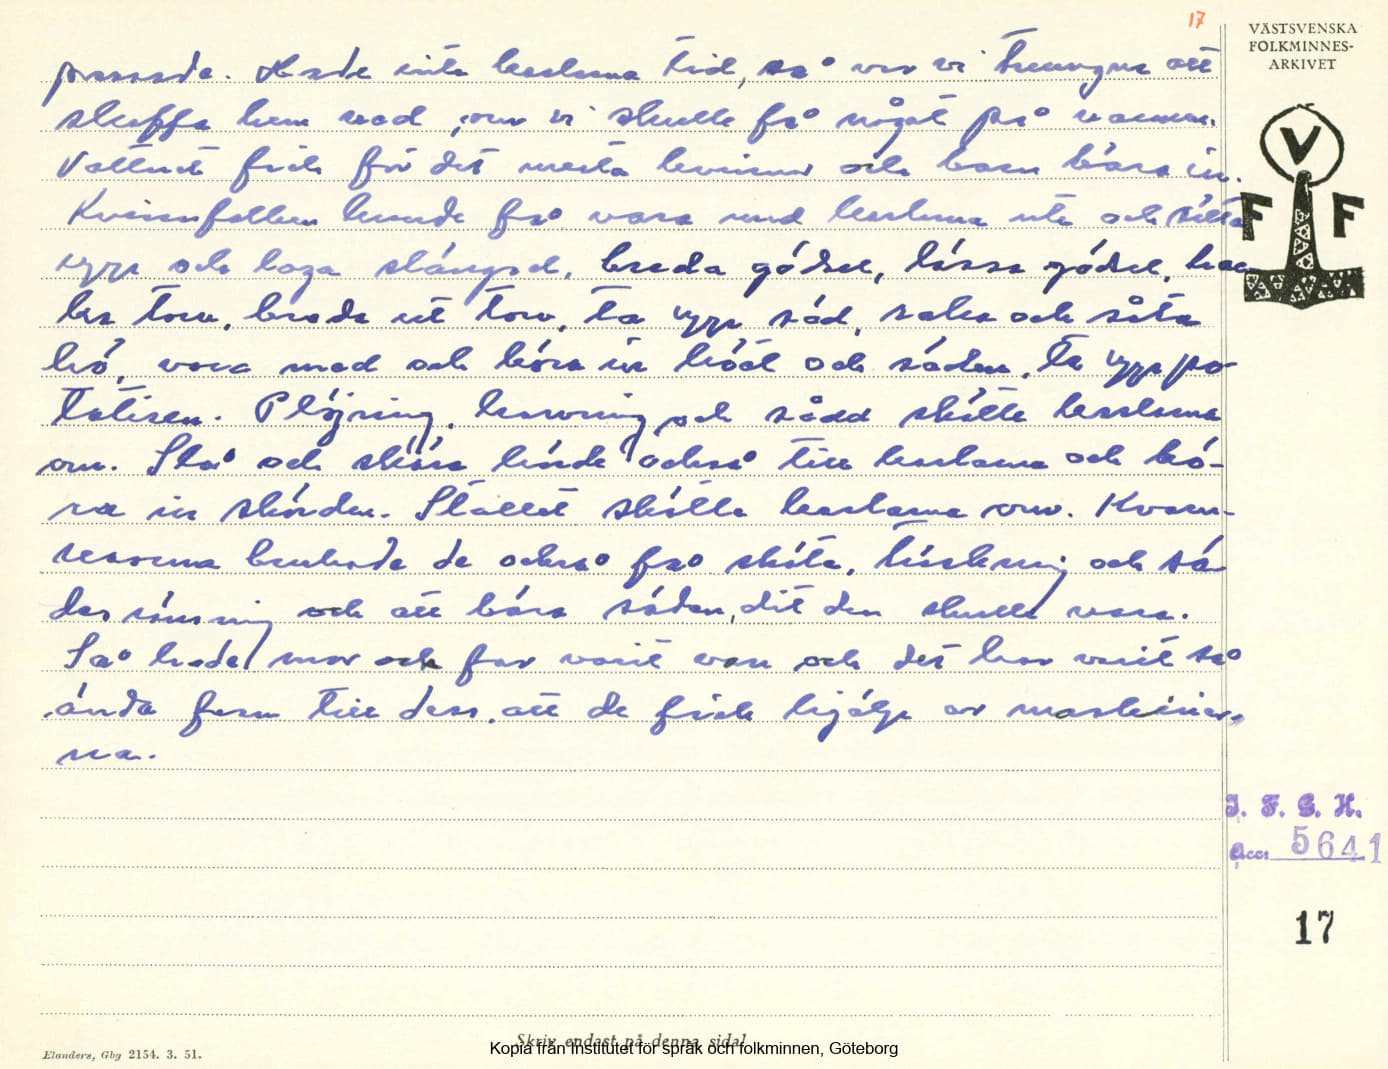 17
VÄSTSVENSKA
FOLKMINNES-
ARKIVET
V
F F
passade. Hade inte karlarna tid, så var vi tvungna att
skaffa hem ved, om vi skulle få något på värmen.
Vattnet fick för det mesta kvinnor och barn bära in.
Kvinnfolken kunde få vara med karlarna ute och sätta
upp och laga stängsel, breda gödsel, lässa gödsel, hac
ka torv, breda ut torv, ta upp säd, raka och såta
hö, vara med och köra in höet och säden, ta upp po-
tatisen. Plöjning, harvning och sådd skötte karlarna
om. Slå och skära hörde också till karlarna och kö-
ra in skörden. Stallet skötte karlarna om. Kvarn-
resorna brukade de också få sköta, tröskning och sä-
desrensning och att bära säden, dit den skulle vara.
Så hade mor och far varit van och det har varit så
ända fram till dess, att de fick hjälp av maskiner-
na.
I. F. G. H.
Acc: 5641
17
Skriv endast på denna sida!
Elanders, Gbg 2154. 3. 51.
Kopia från Institutet för språk och folkminnen, Göteborg